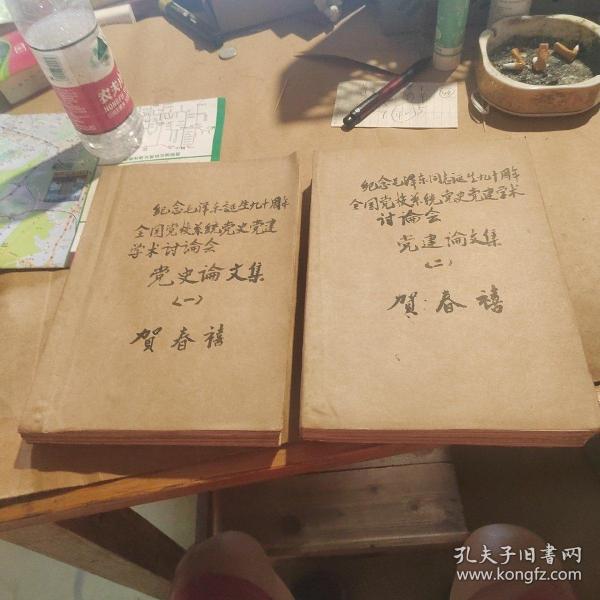 紀念毛泽东誕生九十周年
全国党校系统党史党建
学术讨論会
党史論文集
(一)
賀春禧
紀念毛泽东同志誕生九十周年
全国党校系统党史党建学术
讨論会
党建論文集
(二)
賀春禧
农夫山
孔夫子旧书网
www.kongfz.com